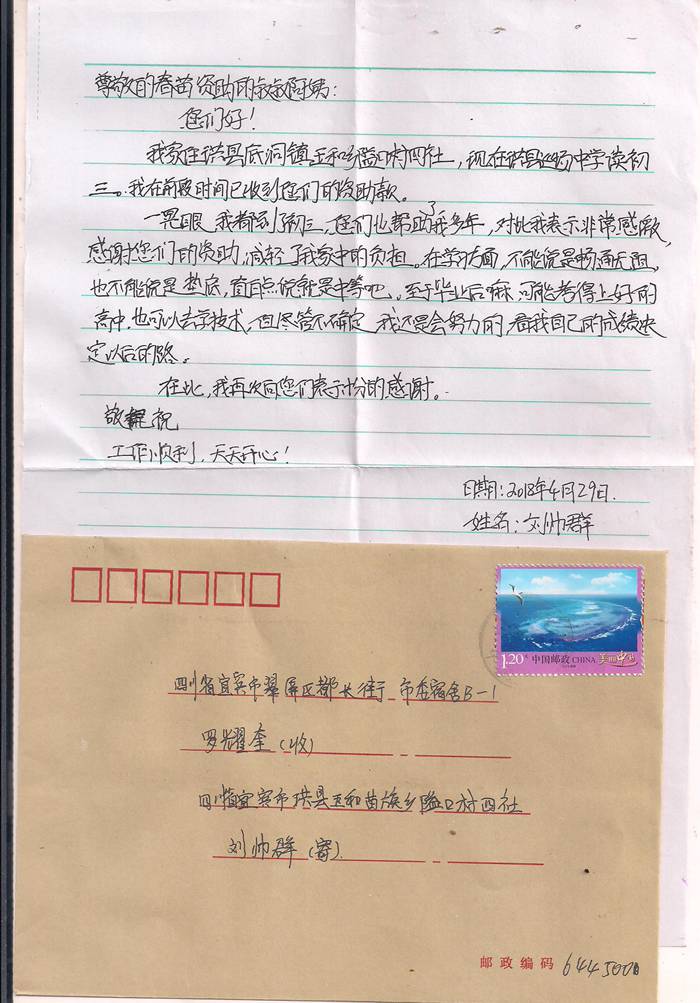 尊敬的春苗资助的叔叔阿姨：
您们好！
我家住珙县底洞镇玉和乡隘口村四社，现在珙县巡场中学读初
三。我在前段时间已收到您们的资助款。
一晃眼我都到初三，您们也帮助了我多年，对此我表示非常感激，
感谢您们的资助，减轻了我家中的负担。在学习方面，不能说是畅通无阻，
也不能说是垫底，直白点说就是中等吧。至于毕业后嘛，可能考得上好的
高中，也可以去学技术，但尽管不确定，我还是会努力的，看我自己的成绩决
定以后的路。
在此，我再次向您们表示十分的感谢。
敬祝
工作顺利，天天开心！
日期：2018年4月29日.
姓名：刘帅群
1.20元 中国邮政 CHINA 美丽中国
四川省宜宾市翠屏区都长街 市委宿舍B-1
罗耀奎（收）
四川省宜宾市珙县玉和苗族乡隘口村四社
刘帅群（寄）.
邮政编码 644500